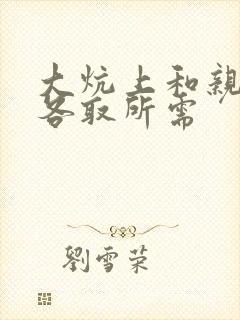 大炕上和親
各取所需
劉雪荣